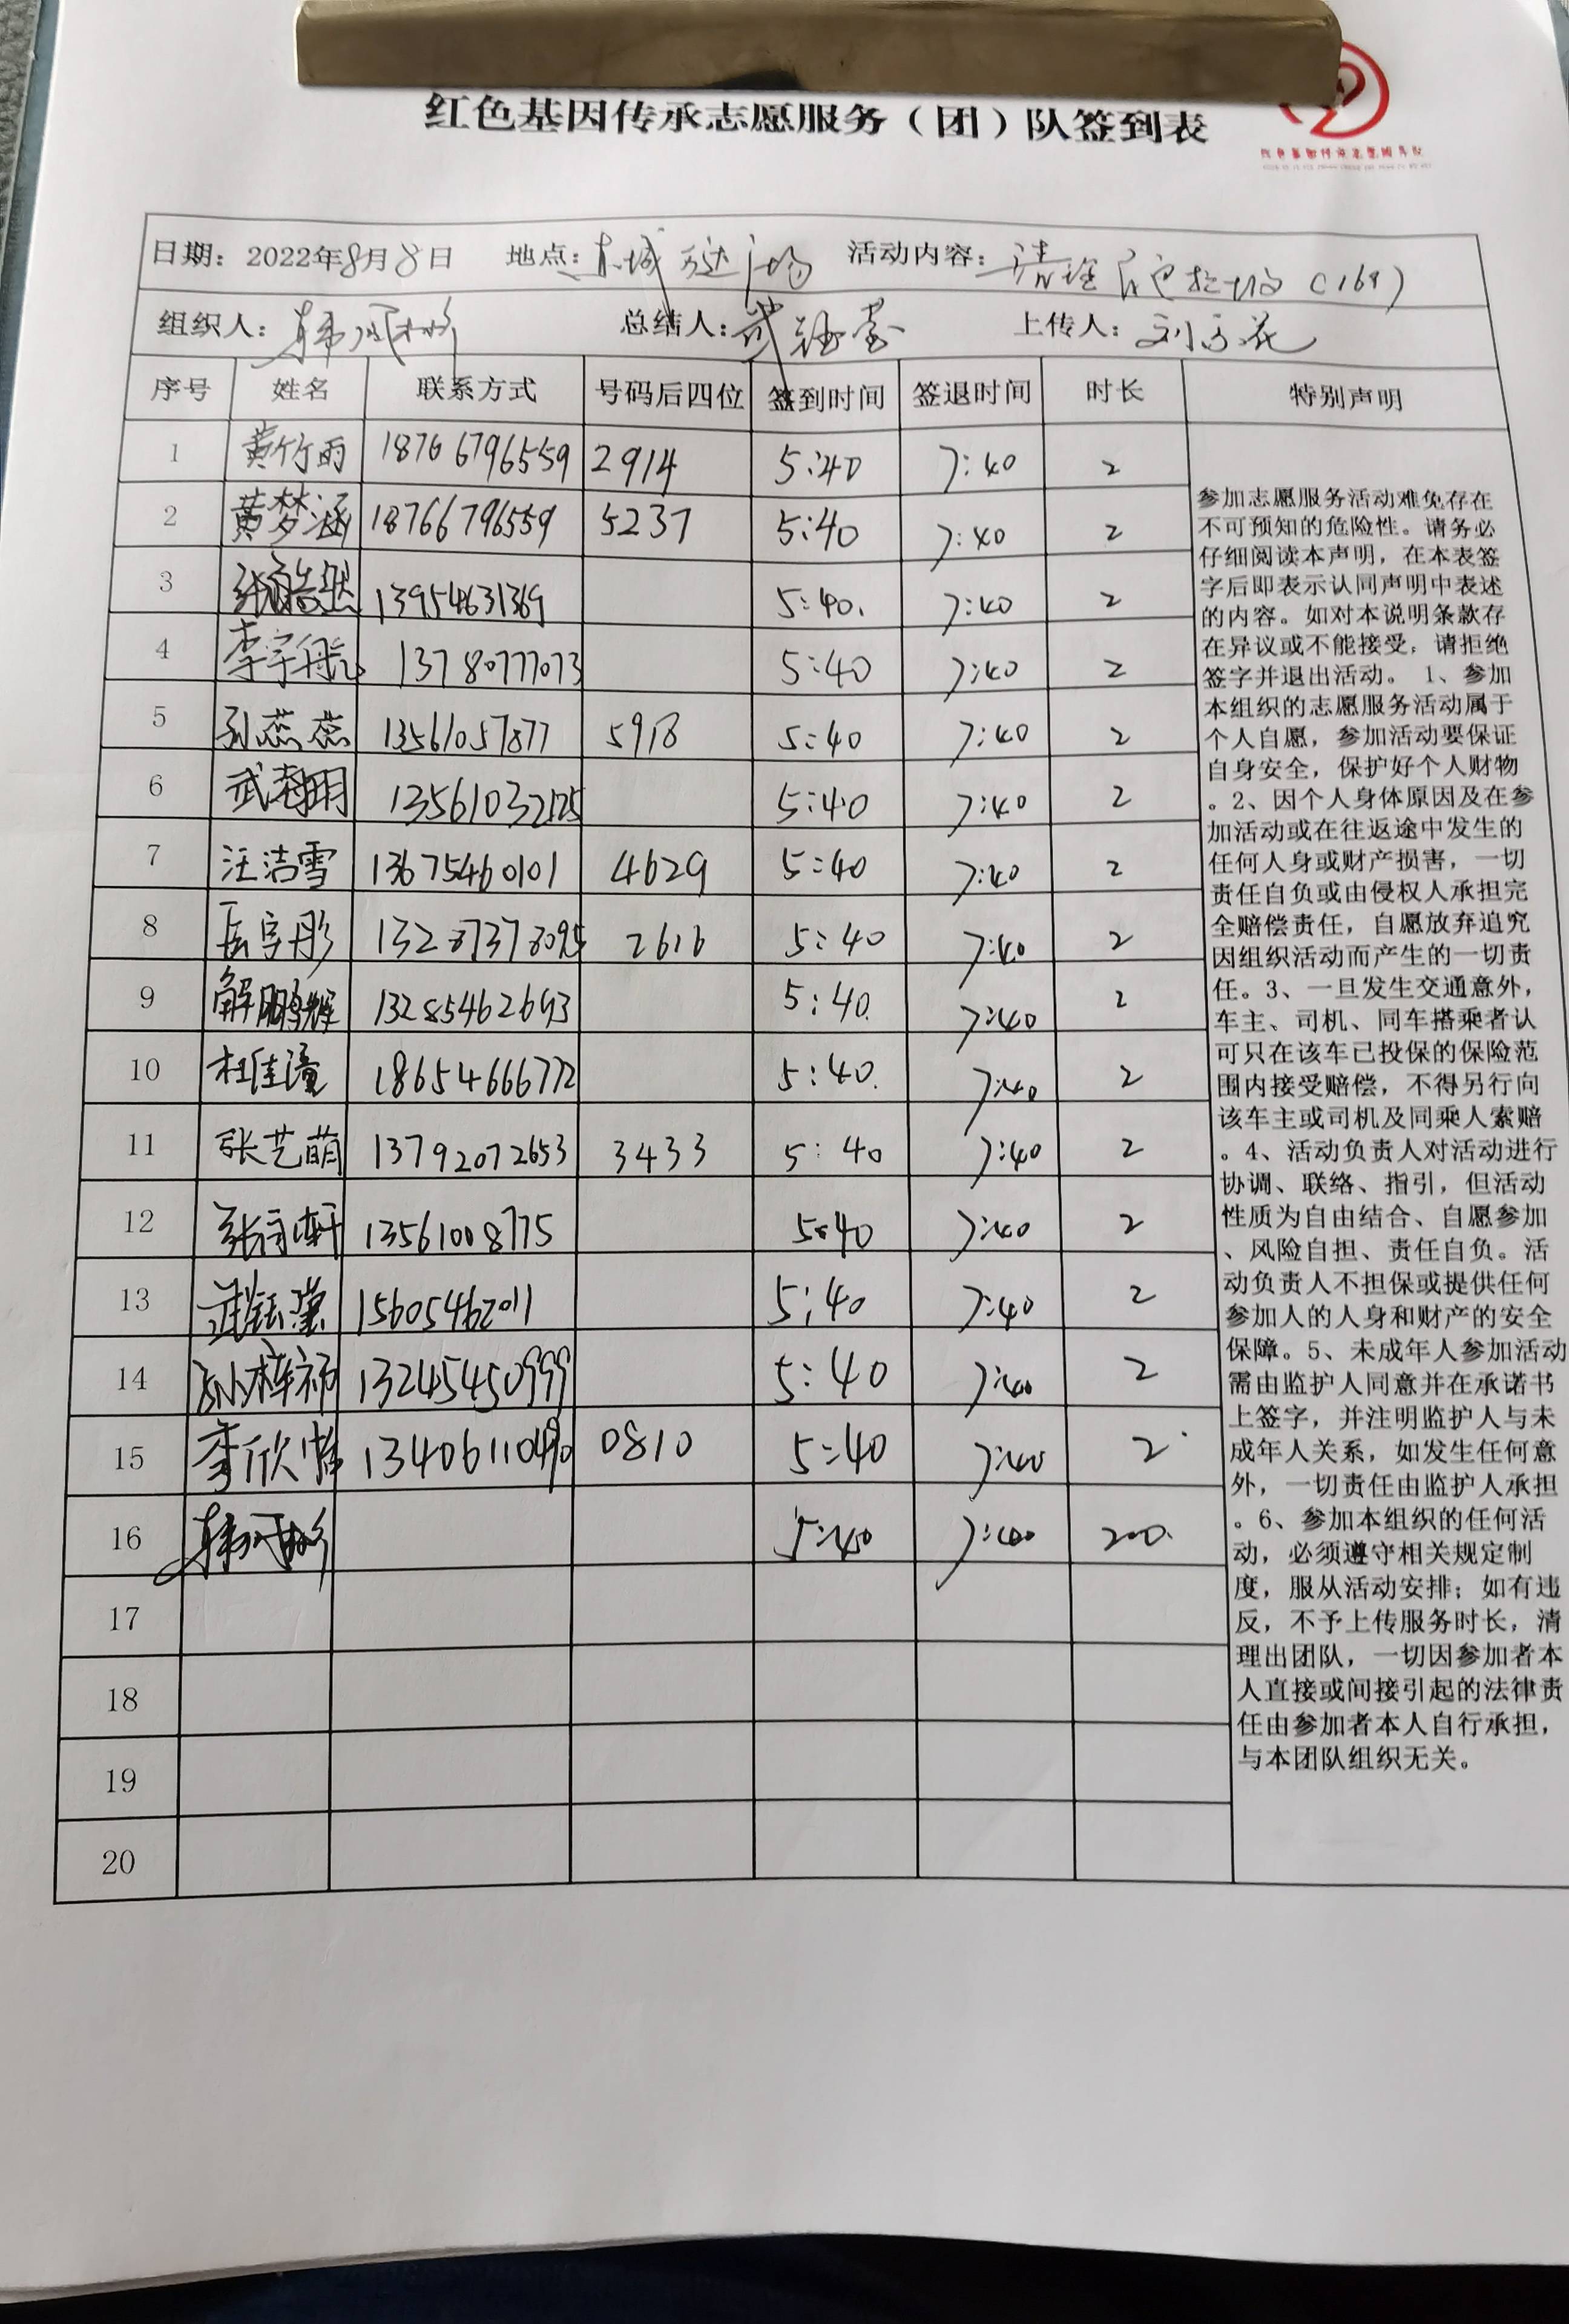 红色基因传承志愿服务（团）队签到表
日期：2022年8月8日 地点：东城万达广场 活动内容：清理白色垃圾（16人）
组织人：韩 总结人：武钰莹 上传人：刘
序号 姓名 联系方式 号码后四位 签到时间 签退时间 时长 特别声明
1 黄竹雨 18766796559 2914 5:40 7:40 2
2 黄梦涵 18766796559 5237 5:40 7:40 2
3 张 13954631369 5:40. 7:40 2
4 李宇航 13780777073 5:40 7:40 2
5 孙蕊蕊 13561057877 5918 5:40 7:40 2
6 武翔 13561032125 5:40 7:40 2
7 汪洁雪 13675460101 4629 5:40 7:40 2
8 岳宇彤 13287378095 2616 5:40 7:40 2
9 解鹏辉 13285462693 5:40. 7:40 2
10 杜佳潼 18654666772 5:40. 7:40 2
11 张艺萌 13792072653 3433 5:40 7:40 2
12 张轩 13561008775 5:40 7:40 2
13 武钰滢 15605462011 5:40 7:40 2
14 梓 13245450999 5:40 7:40 2
15 李欣 13406110490 0810 5:40 7:40 2
16 韩 5:40 7:40 200.
17
18
19
20
参加志愿服务活动难免存在
不可预知的危险性。请务必
仔细阅读本声明，在本表签
字后即表示认同声明中表述
的内容。如对本说明条款存
在异议或不能接受，请拒绝
签字并退出活动。 1、参加
本组织的志愿服务活动属于
个人自愿，参加活动要保证
自身安全，保护好个人财物
。2、因个人身体原因及在参
加活动或在往返途中发生的
任何人身或财产损害，一切
责任自负或由侵权人承担完
全赔偿责任，自愿放弃追究
因组织活动而产生的一切责
任。3、一旦发生交通意外，
车主、司机、同车搭乘者认
可只在该车已投保的保险范
围内接受赔偿，不得另行向
该车主或司机及同乘人索赔
。4、活动负责人对活动进行
协调、联络、指引，但活动
性质为自由结合、自愿参加
、风险自担、责任自负。活
动负责人不担保或提供任何
参加人的人身和财产的安全
保障。5、未成年人参加活动
需由监护人同意并在承诺书
上签字，并注明监护人与未
成年人关系，如发生任何意
外，一切责任由监护人承担
。6、参加本组织的任何活
动，必须遵守相关规定制
度，服从活动安排；如有违
反，不予上传服务时长，清
理出团队，一切因参加者本
人直接或间接引起的法律责
任由参加者本人自行承担，
与本团队组织无关。